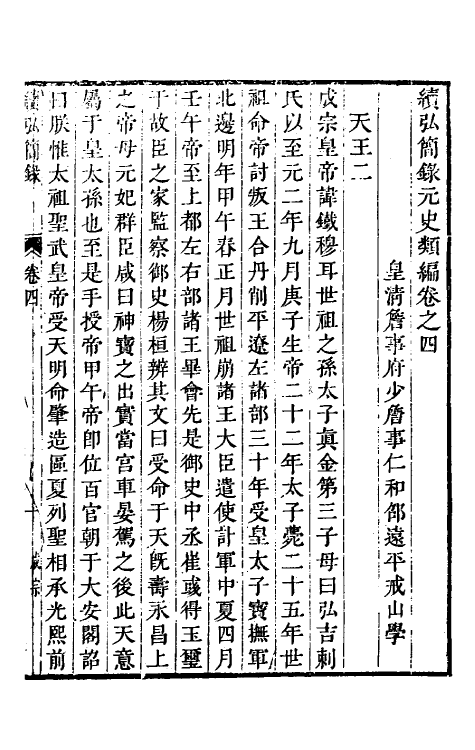 續弘簡錄元史類編卷之四
皇清詹事府少詹事仁和邵遠平戒山學
天王二
成宗皇帝諱鐵穆耳世祖之孫太子眞金第三子母曰弘吉剌
氏以至元二年九月庚子生帝二十二年太子薨二十五年世
祖命帝討叛王合丹削平遼左諸部三十年受皇太子寶撫軍
北邊明年甲午春正月世祖崩諸王大臣遣使計軍中夏四月
壬午帝至上都左右部諸王畢會先是御史中丞崔彧得玉璽
于故臣之家監察御史楊桓辨其文曰受命于天旣壽永昌上
之帝母元妃群臣咸曰神寶之出實當宮車晏駕之後此天意
屬于皇太孫也至是手授帝甲午帝卽位百官朝于大安閣詔
曰朕惟太祖聖武皇帝受天明命肇造區夏列聖相承光熙前
續弘簡錄
卷四
成宗